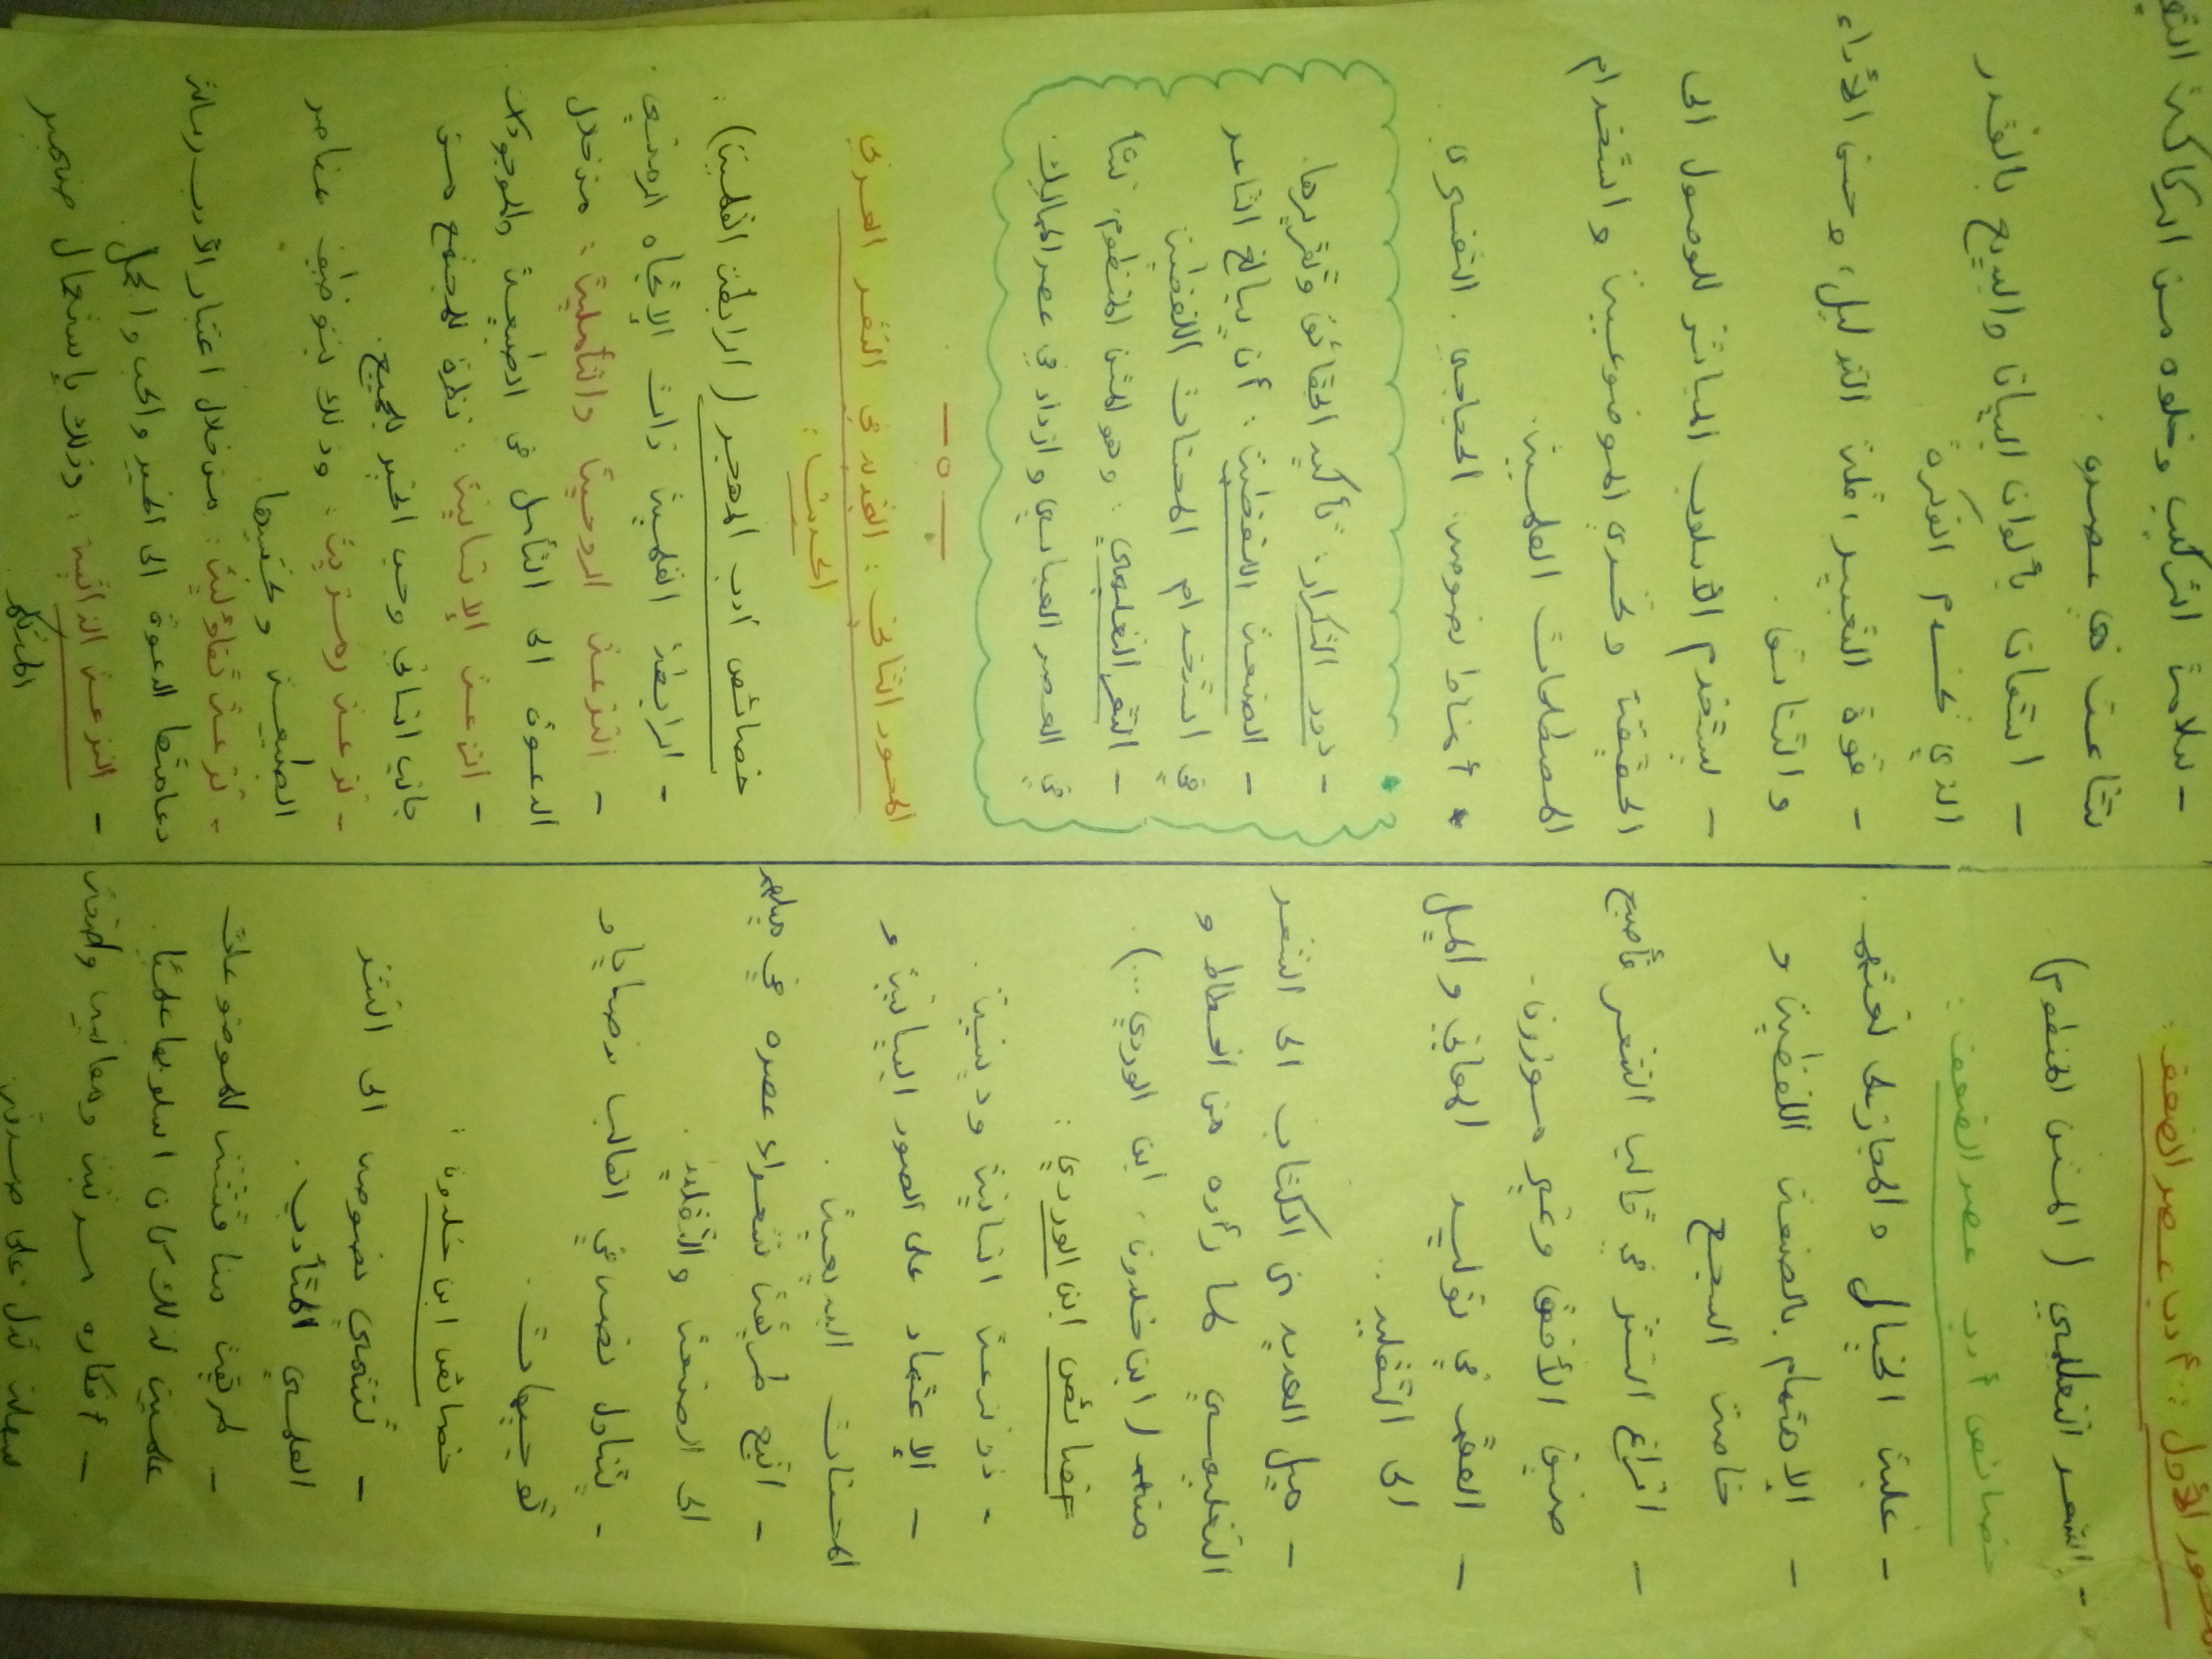 المحور الأول : أدب عصر الضعف :
- الشعر التعليمي ( المتن المنظوم )
خصائص أدب عصر الضعف :
- غلبة الخيال والمجاز على لغتهم .
- الاهتمام بالصنعة اللفظية و
خاصة السجع
- افراغ النثر في قالب الشعر فأصبح
ضيق الأفق وغير موزون .
- العقم في توليد المعاني والميل
الى التقليد .
- ميل العديد من الكتاب الى الشعر
التعليمي لما رأوه من انحطاط و
منهم ( ابن خلدون ، ابن الوردي ... ) .
خصائص ابن الوردي :
- ذو نزعة انسانية ودينية .
- الاعتماد على الصور البيانية و
المحسنات البديعية .
- اتبع طريقة شعراء عصره في ميلهم
الى الصنعة والتقليد .
- يتناول نصه في الغالب نصايا و
توجيهات .
خصائص ابن خلدون :
- تنتمي نصوصه الى النثر
العلمي المتأدب .
- طريقة مناقشته للموضوعات
علمية لذلك كان اسلوبها علميا .
- أفكاره مرتبة ومعانيه واضحة
سهلة تدل على صدقه
- سلامة التركيب وخلوه من الركاكة التي
شاعت في عصره .
- استعان بألوان البيان والبديع بالقدر
الذي يخدم الفكرة
- قوة التعبير ، قلة التدليل ، وحسن الأداء
والتناسق .
- يستخدم الأسلوب المباشر للوصول الى
الحقيقة وتحري الموضوعية واستخدام
المصطلحات العلمية .
* أنماط نصوصه : الحجاجي . التفسيري .
- دور التكرار : تأكيد الحقائق وتقريرها .
- الصنعة اللفظية : أن يبالغ الشاعر
في استخدام المحسنات اللفظية
- الشعر التعليمي : وهو المتن المنظوم ، نشأ
في العصر العباسي وازداد في عصر المماليك
— ٥ —
المحور الثاني : التجديد في الشعر العربي
الحديث :
خصائص أدب المهجر ( الرابطة القلمية ) :
- الرابطة القلمية ذات الاتجاه الرومنسي .
- النزعة الروحية والتأملية : من خلال
الدعوة الى التأمل في الطبيعة والموجودات .
- النزعة الإنسانية : نظرة للمجتمع من
جانب انساني وحب الخير للجميع .
- نزعة رمزية : وذلك بتوظيف عناصر
الطبيعة وتخييرها .
- نزعة تفاؤلية : من خلال اعتبار الأدب رسالة
دعامتها الدعوة الى الخير والحب والجمال .
- النزعة الذاتية : وذلك بإستعمال ضمير
المتكلم